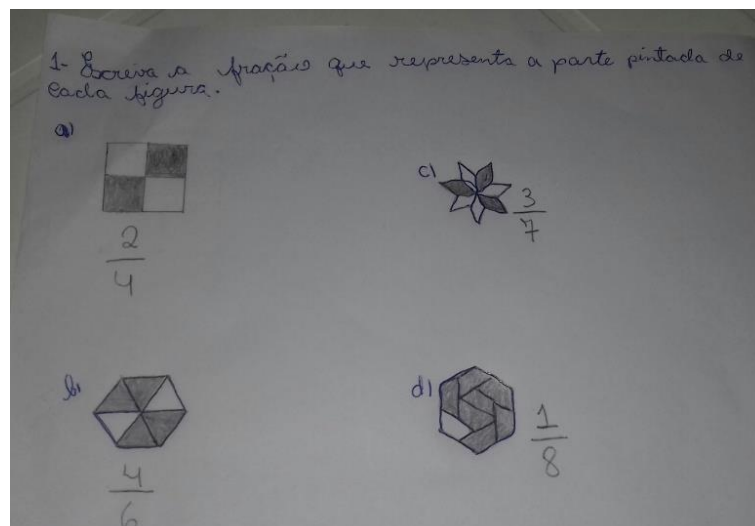 1- Escreva a fração que representa a parte pintada de
cada figura.
a)
2/4
c)
3/7
b)
4/6
d)
1/8